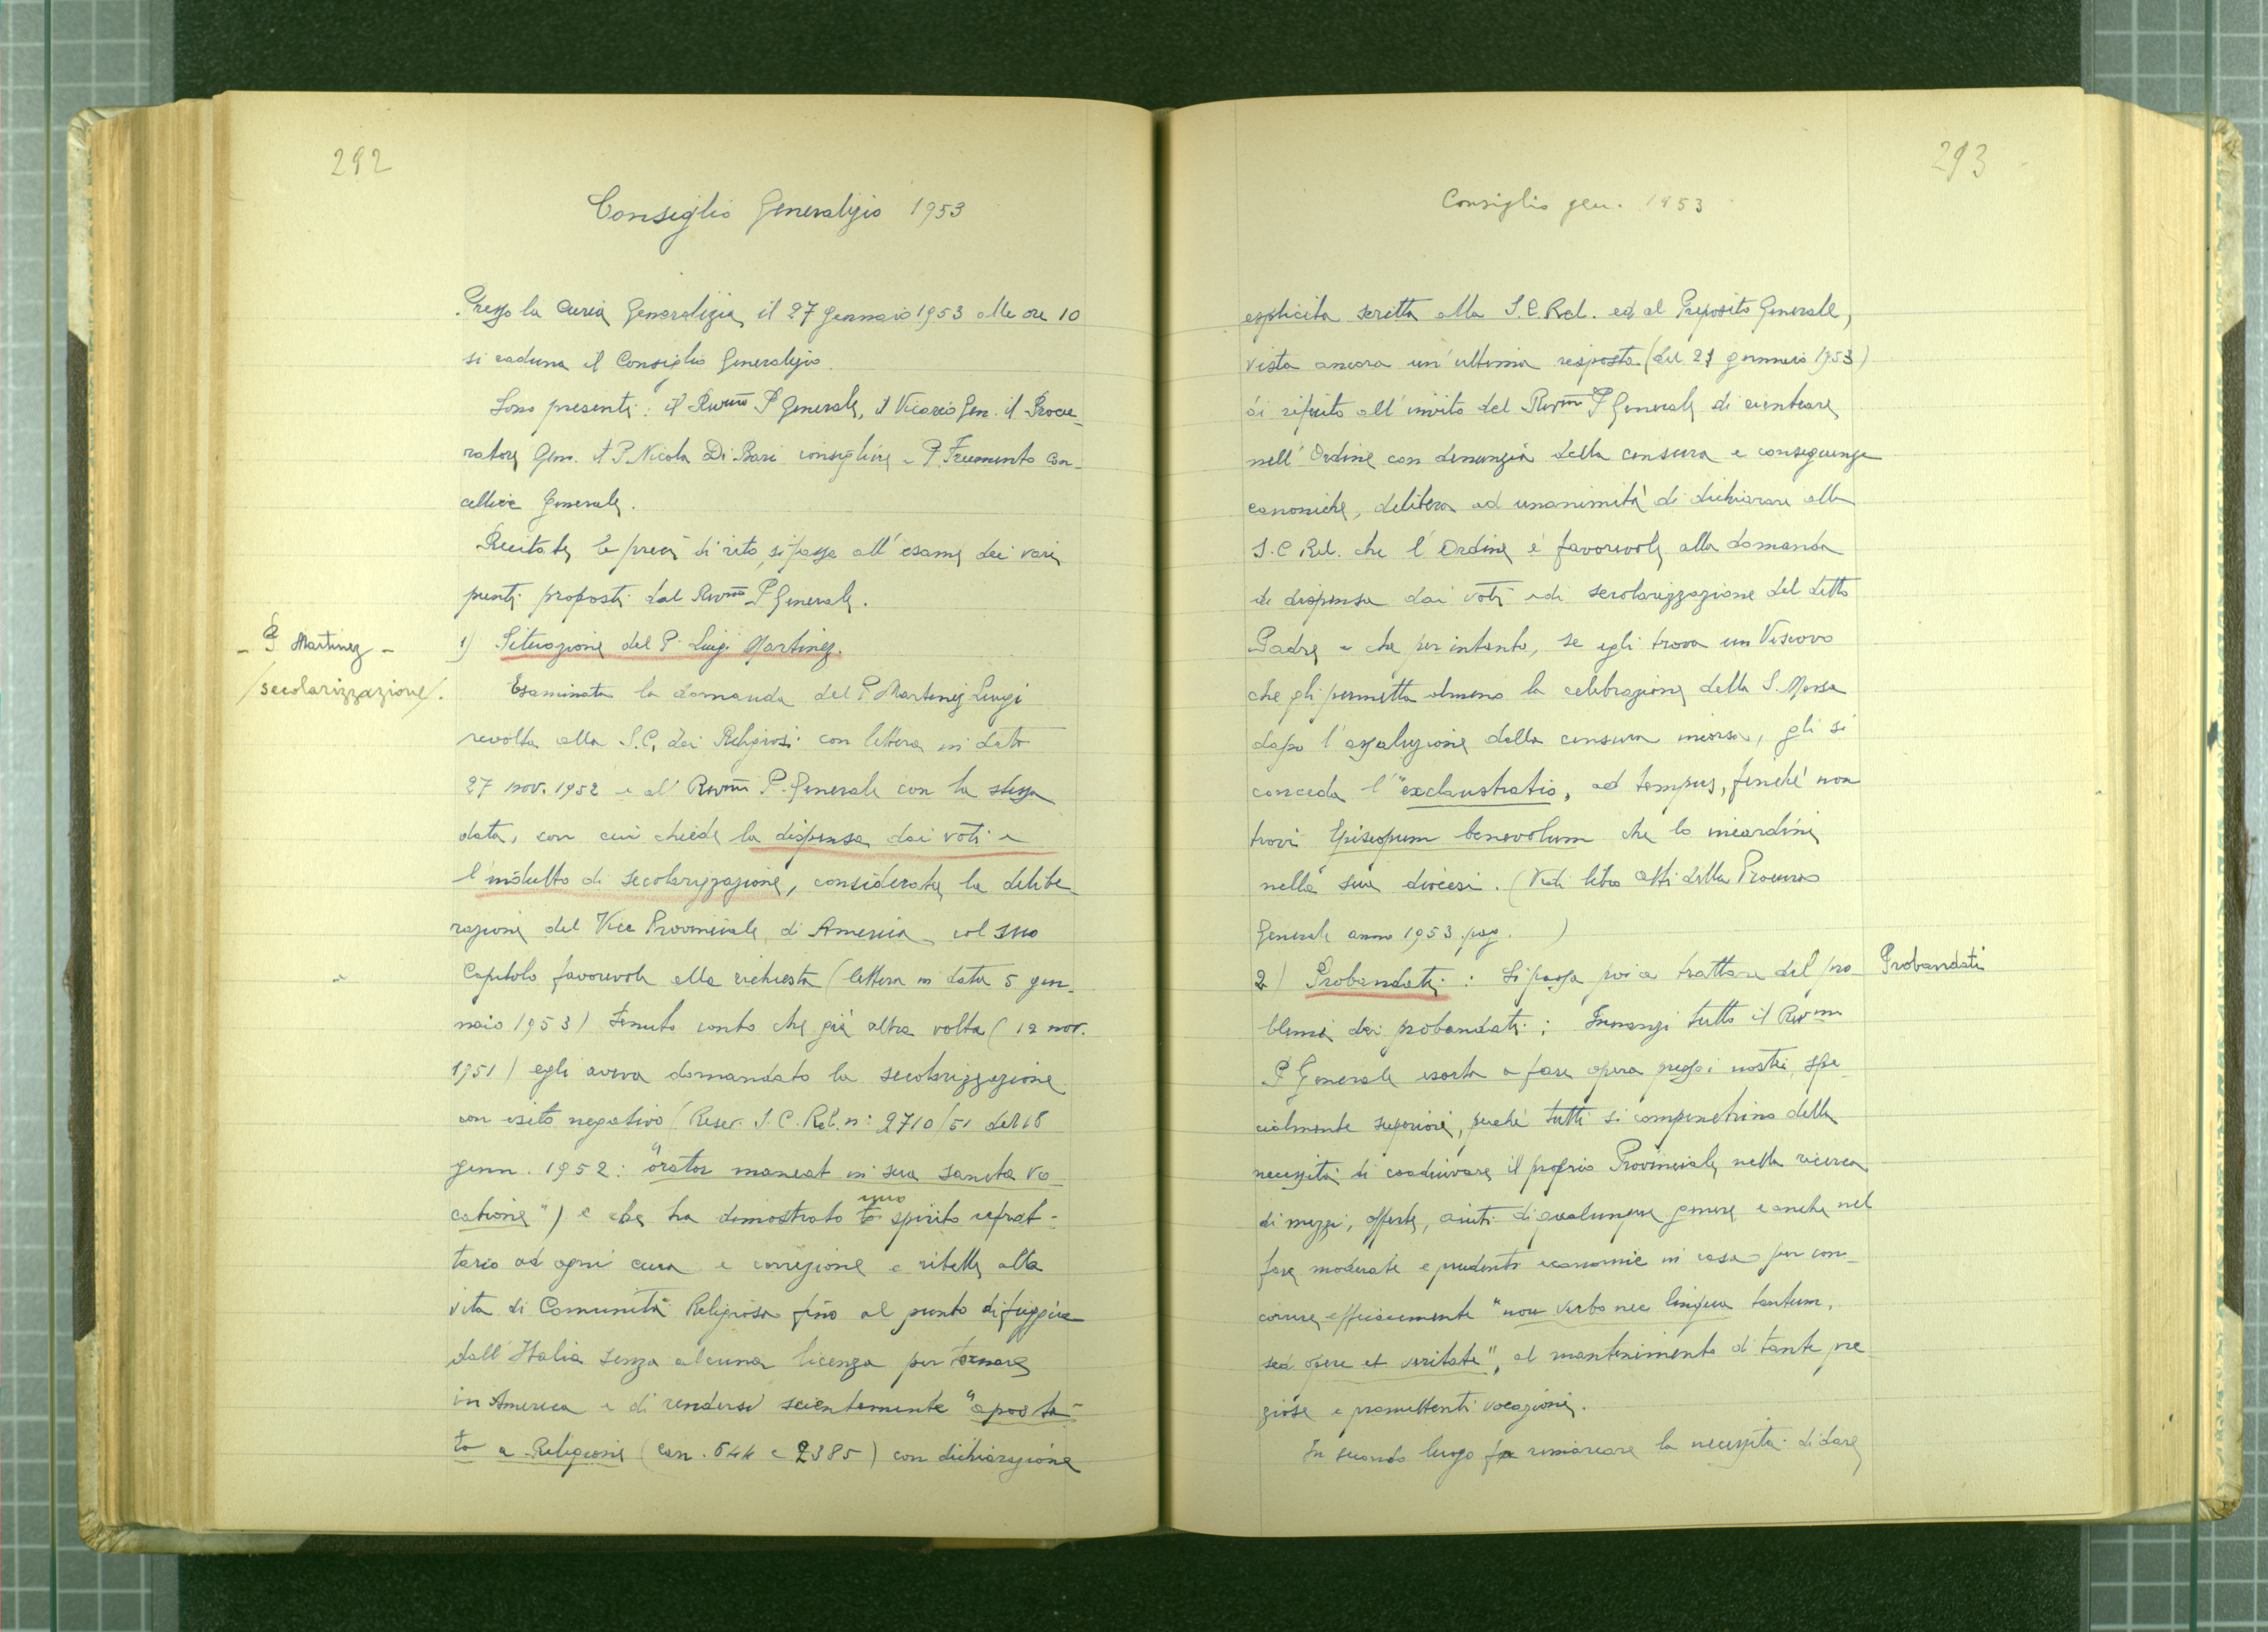 292
Consiglio Generalizio 1953
Presso la Curia Generalizia, il 27 gennaio 1953 alle ore 10
si raduna il Consiglio Generalizio.
Sono presenti: il Rev.mo P. Generale, il Vicario Gen. il Procu-
ratore Gen. il P. Nicola Di Bari consigliere e P. Frumento Can-
celliere Generale.
Recitate le preci di rito, si passa all'esame dei vari
punti proposti dal Rev.mo P. Generale.
- P. Martinez -
/secolarizzazione/.
1) Situazione del P. Luigi Martinez.
Esaminata la domanda del P. Martinez Luigi
rivolta alla S.C. dei Religiosi con lettera in data
27 nov. 1952 e al Rev.mo P. Generale con la stessa
data, con cui chiede la dispensa dai voti e
l'indulto di secolarizzazione, considerata la delibe-
razione del Vice Provinciale di America col suo
Capitolo favorevole alla richiesta (lettera in data 5 gen-
naio 1953) Tenuto conto che già altra volta (12 nov.
1951) egli aveva domandato la secolarizzazione
con esito negativo (Rescr. S.C. Rel. n: 2710/51 del 18
genn. 1952: "orator maneat in sua sancta vo-
catione") e che ha dimostrato uno spirito refrat-
tario ad ogni cura e correzione e ribelle alla
vita di Comunità Religiosa fino al punto di fuggire
dall'Italia senza alcuna licenza per tornare
in America e di rendersi scientemente "aposta-
ta a Religione (can. 644 e 2385) con dichiarazione
293
Consiglio gen. 1953
esplicita scritta alla S.C. Rel. ed al Preposito Generale,
vista ancora un'ultima risposta (del 21 gennaio 1953)
di rifiuto all'invito del Rev.m P. Generale di rientrare
nell'Ordine con denunzia della censura e conseguenze
canoniche, delibera ad unanimità di dichiarare alla
S.C. Rel. che l'Ordine è favorevole alla domanda
di dispensa dai voti e di secolarizzazione del detto
Padre e che per intanto, se egli trova un Vescovo
che gli permetta almeno la celebrazione della S. Messa
dopo l'assoluzione della censura incorsa, gli si
conceda l'"exclaustratio, ad tempus, finché non
trovi Episcopum benevolum che lo incardini
nella sua diocesi. (Vedi libro Atti della Procura
Generale anno 1953 pag. )
2) Probandati: Si passa poi a trattare del pro-
Probandati
blema dei probandati: Innanzi tutto il Rev.mo
P. Generale esorta a fare opera presso i nostri, spe-
cialmente superiori, perché tutti si compenetrino della
necessità di coadiuvare il proprio Provinciale nella ricerca
di mezzi, offerte, aiuti di qualunque genere e anche nel
fare moderate e prudenti economie in casa per con-
correre efficacemente "non verbo nec lingua tantum,
sed opere et veritate", al mantenimento di tante pre-
ziose e promettenti vocazioni.
In secondo luogo fa rimarcare la necessità di dare